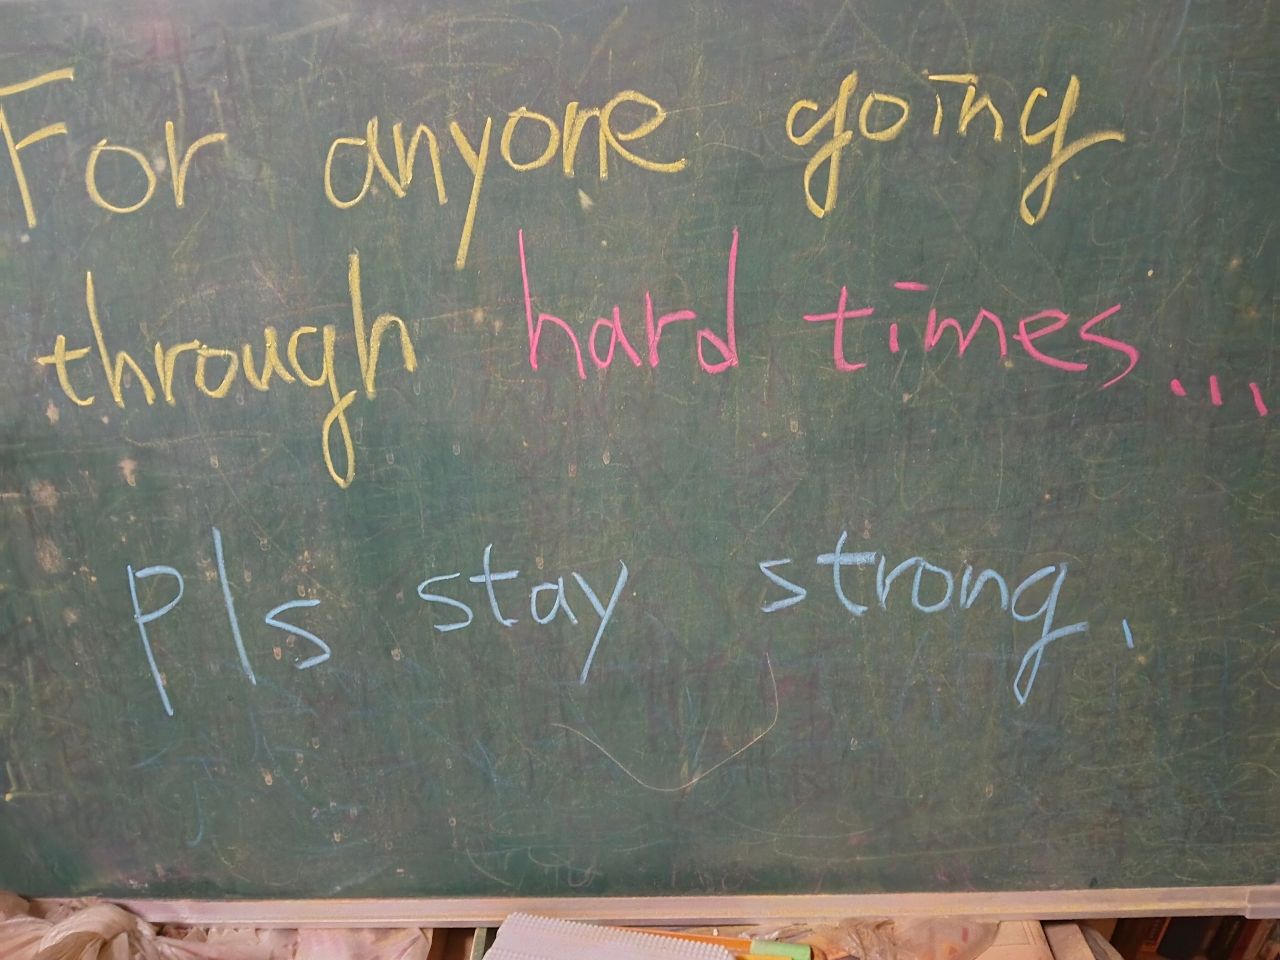 For anyone going
through hard times...
Pls stay strong.